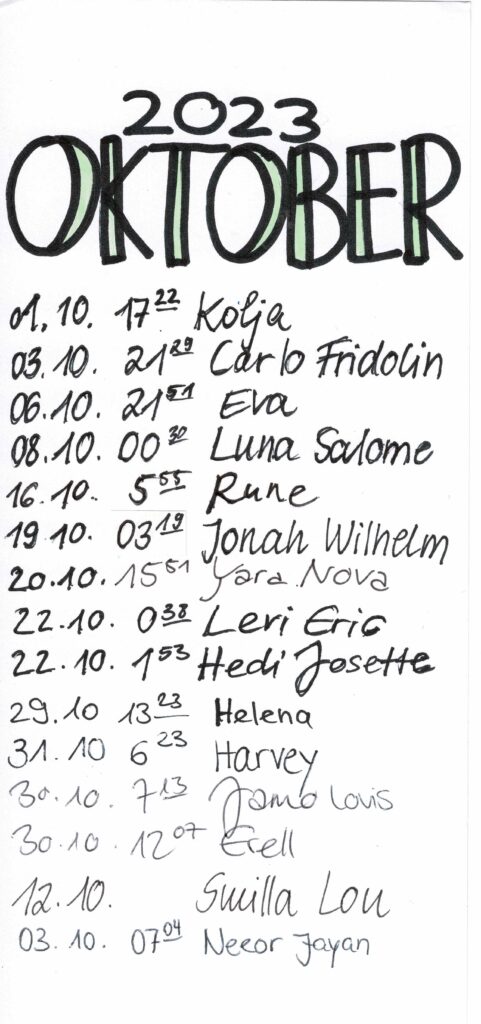 2023
OKTOBER
01.10. 17 22 Kolja
03.10. 21 29 Carlo Fridolin
06.10. 21 51 Eva
08.10. 00 30 Luna Salome
16.10. 5 55 Rune
19.10. 03 19 Jonah Wilhelm
20.10. 15 51 Yara Nova
22.10. 0 38 Levi Eric
22.10. 1 53 Hedi Josette
29.10 13 23 Helena
31.10 6 23 Harvey
30.10. 7 13 Jamo Louis
30.10. 12 07 Erell
12.10. Smilla Lou
03.10. 07 04 Jayan